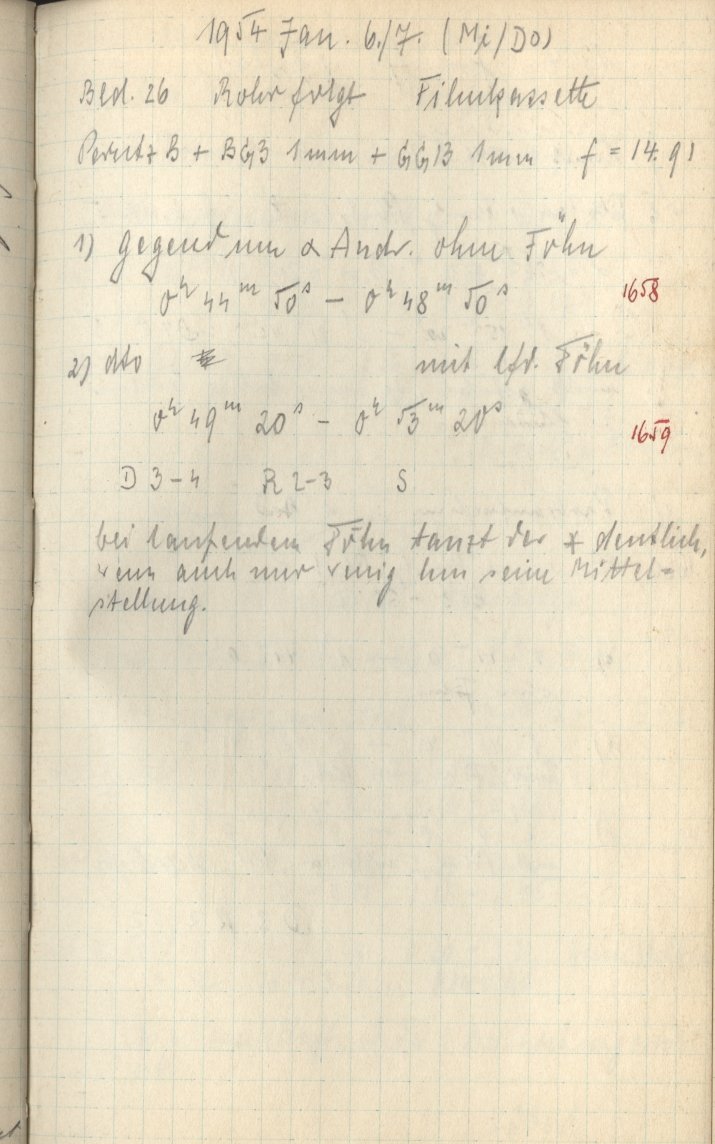 1954 Jan. 6./7. (Mi/Do)
Bed. 26 Rohr folgt Filmkassette
Perutz B + BG3 1mm + GG13 1mm f = 14.91
1) Gegend um α Andr. ohne Föhn
0h 44m 50s – 0h 48m 50s 1658
2) dto mit lfd. Föhn
0h 49m 20s – 0h 53m 20s 1659
D 3–4 R 2–3 S
bei laufendem Föhn tanzt der * deutlich,
wenn auch nur wenig um seine Mittel-
stellung.